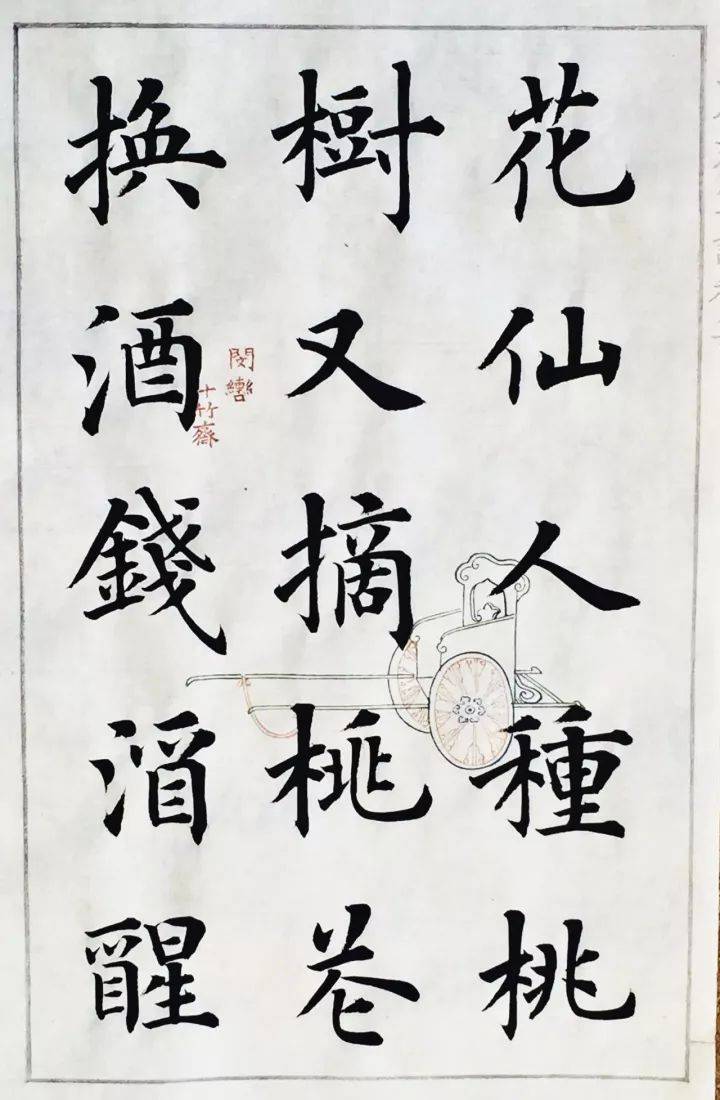 花仙人種桃
樹又摘桃花
換酒錢酒醒
閔轡
十竹齋